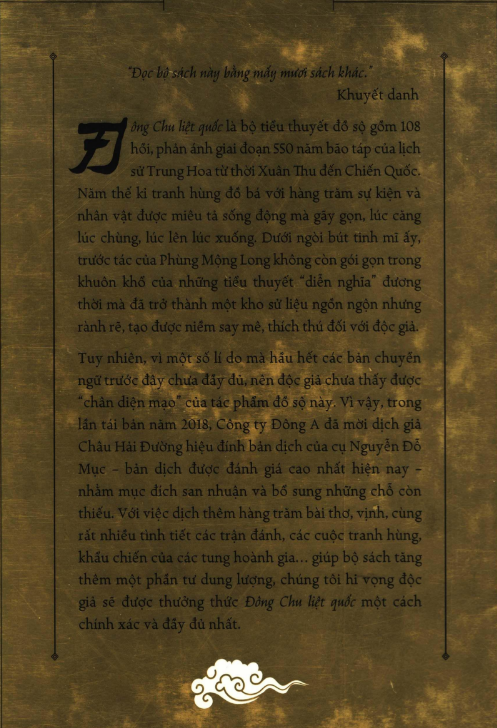 "Đọc bộ sách này bằng mấy mươi sách khác."
Khuyết danh
Đông Chu liệt quốc là bộ tiểu thuyết đồ sộ gồm 108
hồi, phản ánh giai đoạn 550 năm bão táp của lịch
sử Trung Hoa từ thời Xuân Thu đến Chiến Quốc.
Năm thế kỉ tranh hùng đồ bá với hàng trăm sự kiện và
nhân vật được miêu tả sống động mà gãy gọn, lúc căng
lúc chùng, lúc lên lúc xuống. Dưới ngòi bút tinh mĩ ấy,
trước tác của Phùng Mộng Long không còn gói gọn trong
khuôn khổ của những tiểu thuyết "diễn nghĩa" đương
thời mà đã trở thành một kho sử liệu ngồn ngộn nhưng
rành rẽ, tạo được niềm say mê, thích thú đối với độc giả.
Tuy nhiên, vì một số lí do mà hầu hết các bản chuyển
ngữ trước đây chưa đầy đủ, nên độc giả chưa thấy được
"chân diện mạo" của tác phẩm đồ sộ này. Vì vậy, trong
lần tái bản năm 2018, Công ty Đông A đã mời dịch giả
Châu Hải Đường hiệu đính bản dịch của cụ Nguyễn Đỗ
Mục – bản dịch được đánh giá cao nhất hiện nay –
nhằm mục đích san nhuận và bổ sung những chỗ còn
thiếu. Với việc dịch thêm hàng trăm bài thơ, vịnh, cùng
rất nhiều tình tiết các trận đánh, các cuộc tranh hùng,
khẩu chiến của các tung hoành gia... giúp bộ sách tăng
thêm một phần tư dung lượng, chúng tôi hi vọng độc
giả sẽ được thưởng thức Đông Chu liệt quốc một cách
chính xác và đầy đủ nhất.